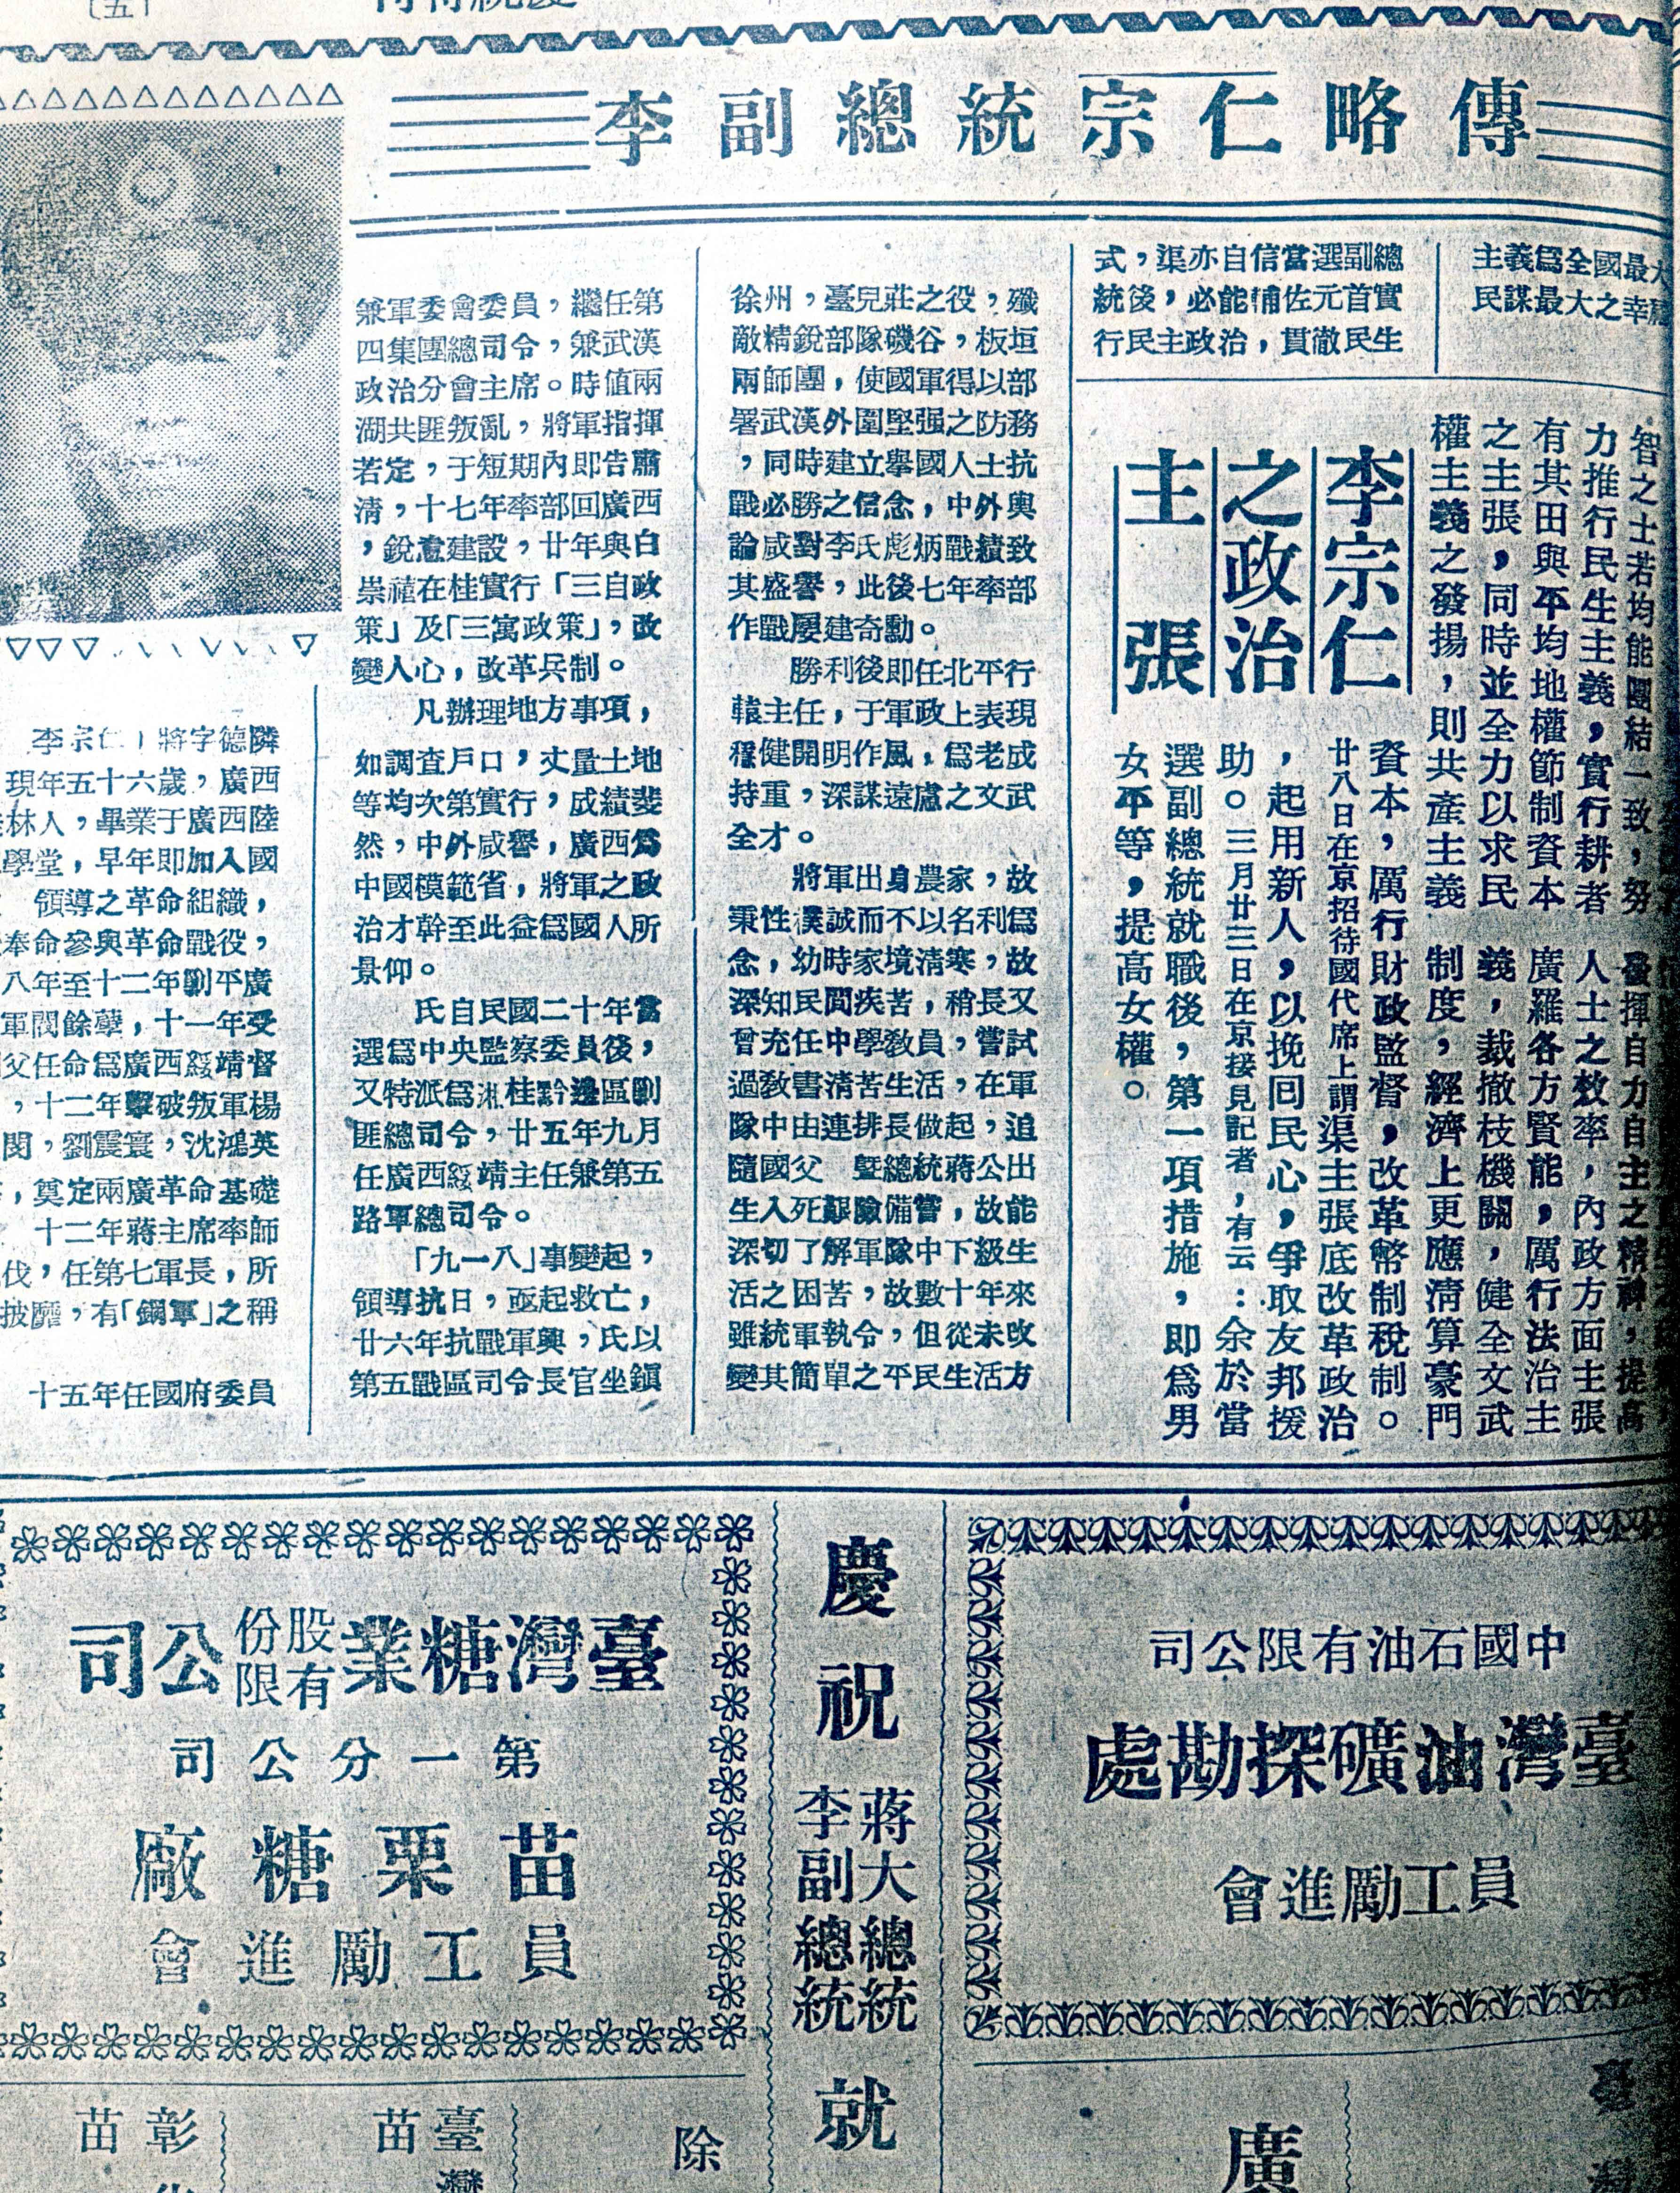 〔五〕
李副總統宗仁略傳
李宗仁 將字德隣
現年五十六歲，廣西
林人，畢業于廣西陸
學堂，早年即加入國
領導之革命組織，
奉命參與革命戰役，
八年至十二年剿平廣
軍閥餘孽，十一年受
父任命爲廣西綏靖督
，十二年擊破叛軍楊
閔，劉震寰，沈鴻英
，奠定兩廣革命基礎
十二年蔣主席率師
伐，任第七軍長，所
披靡，有「鋼軍」之稱
十五年任國府委員
兼軍委會委員，繼任第
四集團總司令，兼武漢
政治分會主席。時值兩
湖共匪叛亂，將軍指揮
若定，于短期內即告肅
清，十七年率部回廣西
，銳意建設，廿年與白
崇禧在桂實行「三自政
策」及「三寓政策」，改
變人心，改革兵制。
凡辦理地方事項，
如調查戶口，丈量土地
等均次第實行，成績斐
然，中外咸譽，廣西爲
中國模範省，將軍之政
治才幹至此益爲國人所
景仰。
氏自民國二十年當
選爲中央監察委員後，
又特派爲湘桂黔邊區剿
匪總司令，廿五年九月
任廣西綏靖主任兼第五
路軍總司令。
「九一八」事變起，
領導抗日，亟起救亡，
廿六年抗戰軍興，氏以
第五戰區司令長官坐鎮
徐州，臺兒莊之役，殲
敵精銳部隊磯谷，板垣
兩師團，使國軍得以部
署武漢外圍堅强之防務
，同時建立舉國人士抗
戰必勝之信念，中外輿
論咸對李氏彪炳戰績致
其盛譽，此後七年率部
作戰屢建奇勳。
勝利後即任北平行
轅主任，于軍政上表現
穩健開明作風，爲老成
持重，深謀遠慮之文武
全才。
將軍出身農家，故
秉性樸誠而不以名利爲
念，幼時家境清寒，故
深知民間疾苦，稍長又
曾充任中學教員，嘗試
過教書清苦生活，在軍
隊中由連排長做起，追
隨國父 曁總統蔣公出
生入死艱險備嘗，故能
深切了解軍隊中下級生
活之困苦，故數十年來
雖統軍執令，但從未改
變其簡單之平民生活方
式，渠亦自信當選副總
統後，必能輔佐元首實
行民主政治，貫徹民生
主義爲全國最大
民謀最大之幸
李宗仁
之政治
主張
智之士若均能團結一致，努
力推行民生主義，實行耕者
有其田與平均地權節制資本
之主張，同時並全力以求民
權主義之發揚，則共產主義
發揮自力自主之精神，提高
人士之效率，內政方面主張
廣羅各方賢能，厲行法治主
義，裁撤枝機關，健全文武
制度，經濟上更應清算豪門
資本，厲行財政監督，改革幣制稅制。
廿八日在京招待國代席上謂渠主張底改革政治
，起用新人，以挽回民心，爭取友邦援
助。三月廿三日在京接見記者，有云：余於當
選副總統就職後，第一項措施，即爲男
女平等，提高女權。
中國石油有限公司
臺灣油礦探勘處
員工勵進會
慶祝
蔣大總統
李副總統
就
臺灣糖業股份有限公司
第一分公司
苗栗糖廠
員工勵進會
廣
除
臺灣
苗
彰
苗